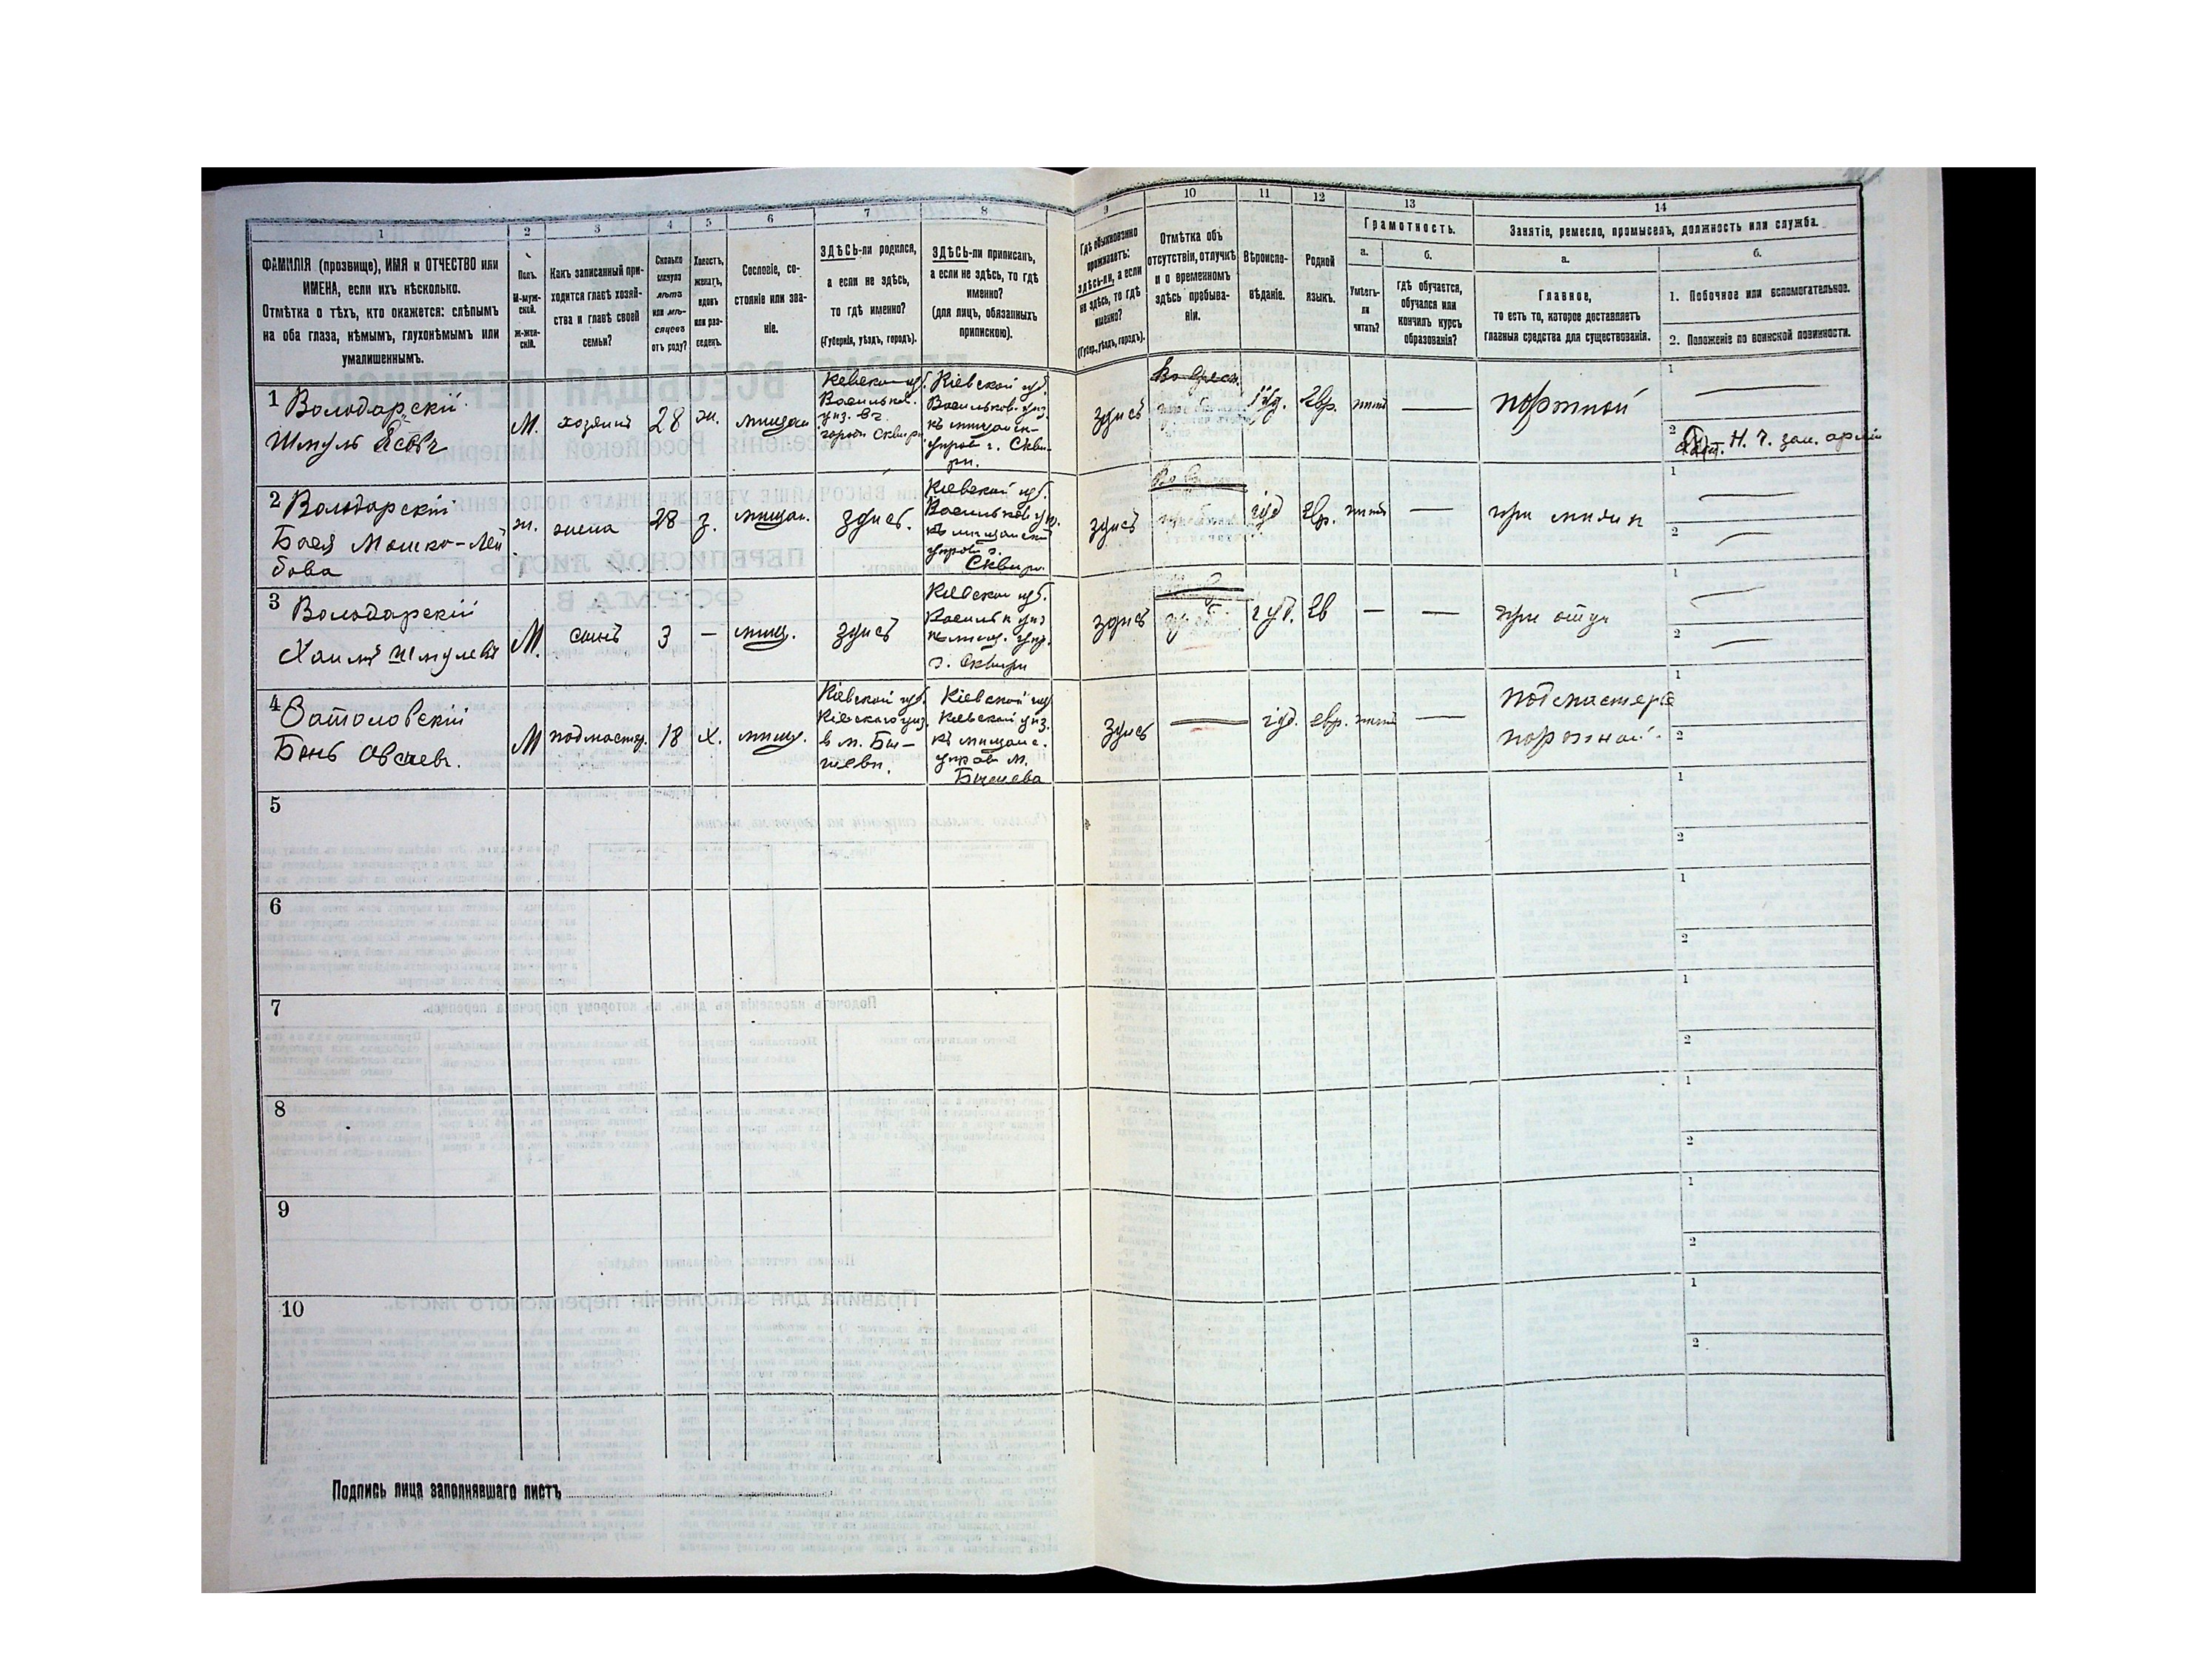 1 2 3 4 5 6 7 8 9 10 11 12 13 14
ФАМИЛІЯ (прозвище), ИМЯ и ОТЧЕСТВО или
ИМЕНА, если ихъ нѣсколько.
Отмѣтка о тѣхъ, кто окажется: слѣпымъ
на оба глаза, нѣмымъ, глухонѣмымъ или
умалишеннымъ.
Полъ.
М-муж-
ской.
Ж-жен-
скій.
Какъ записанный при-
ходится главѣ хозяй-
ства и главѣ своей
семьи?
Сколько
минуло
лѣтъ
или мѣ-
сяцевъ
отъ роду?
Холостъ,
женатъ,
вдовъ
или раз-
веденъ.
Сословіе, со-
стояніе или зва-
ніе.
ЗДѢСЬ-ли родился,
а если не здѣсь,
то гдѣ именно?
(Губернія, уѣздъ, городъ).
ЗДѢСЬ-ли приписанъ,
а если не здѣсь, то гдѣ
именно?
(для лицъ, обязанныхъ
припискою).
Гдѣ обыкновенно
проживаетъ:
здѣсь-ли, а если
не здѣсь, то гдѣ
именно?
(Губер., уѣздъ, городъ).
Отмѣтка объ
отсутствіи, отлучкѣ
и о временномъ
здѣсь пребыва-
ніи.
Вѣроиспо-
вѣданіе.
Родной
языкъ.
Грамотность.
а.
Умѣетъ-
ли
читать?
б.
гдѣ обучается,
обучался или
кончилъ курсъ
образованія?
Занятіе, ремесло, промыселъ, должность или служба.
а.
Главное,
то есть то, которое доставляетъ
главныя средства для существованія.
б.
1. Побочное или вспомогательное.
2. Положеніе по воинской повинности.
1 Володарскій
Шмуль
М. хозяинъ 28 ж. мищан
Кіевской губ.
Васильков.
уиз. въ
городи Сквири
Кіевской губ.
Васильков. уиз.
къ мищанск-
управ г. Скви-
ри.
здись іуд. евр. портной
1
2
Н. Ч. зап. арміи
2 Володарскій
Бася Мошко-Лей
бова
ж. жена 28 з. мищан. здись.
Кіевской губ.
Васильков уиз.
къ мищанской
управ г.
Сквири
здись іуд евр. при мижи
1
2
3 Володарскій
Хаимъ Шмулевъ
М. сынъ 3 — мищ. здись
Кіевской губ.
Васильк уиз
къ мищ. упр.
г. Сквири
здись іуд. ев — — при отци
1
2
4
Бень Овсіевъ.
М подмастер. 18 х. мищ.
Кіевской губ.
Кіевскаго уиз.
в м. Бы-
шеви.
Кіевской губ
Кіевской уиз.
къ мищанс.
управ м.
Бышева
здись — іуд. евр. —
подмастерье
портной.
1
2
5
1
2
6
1
2
7
1
2
8
1
2
9
1
2
10
1
2
Подпись лица заполнявшаго листъ